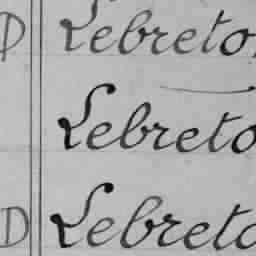 D Lebreto
Lebreto
D Lebreto